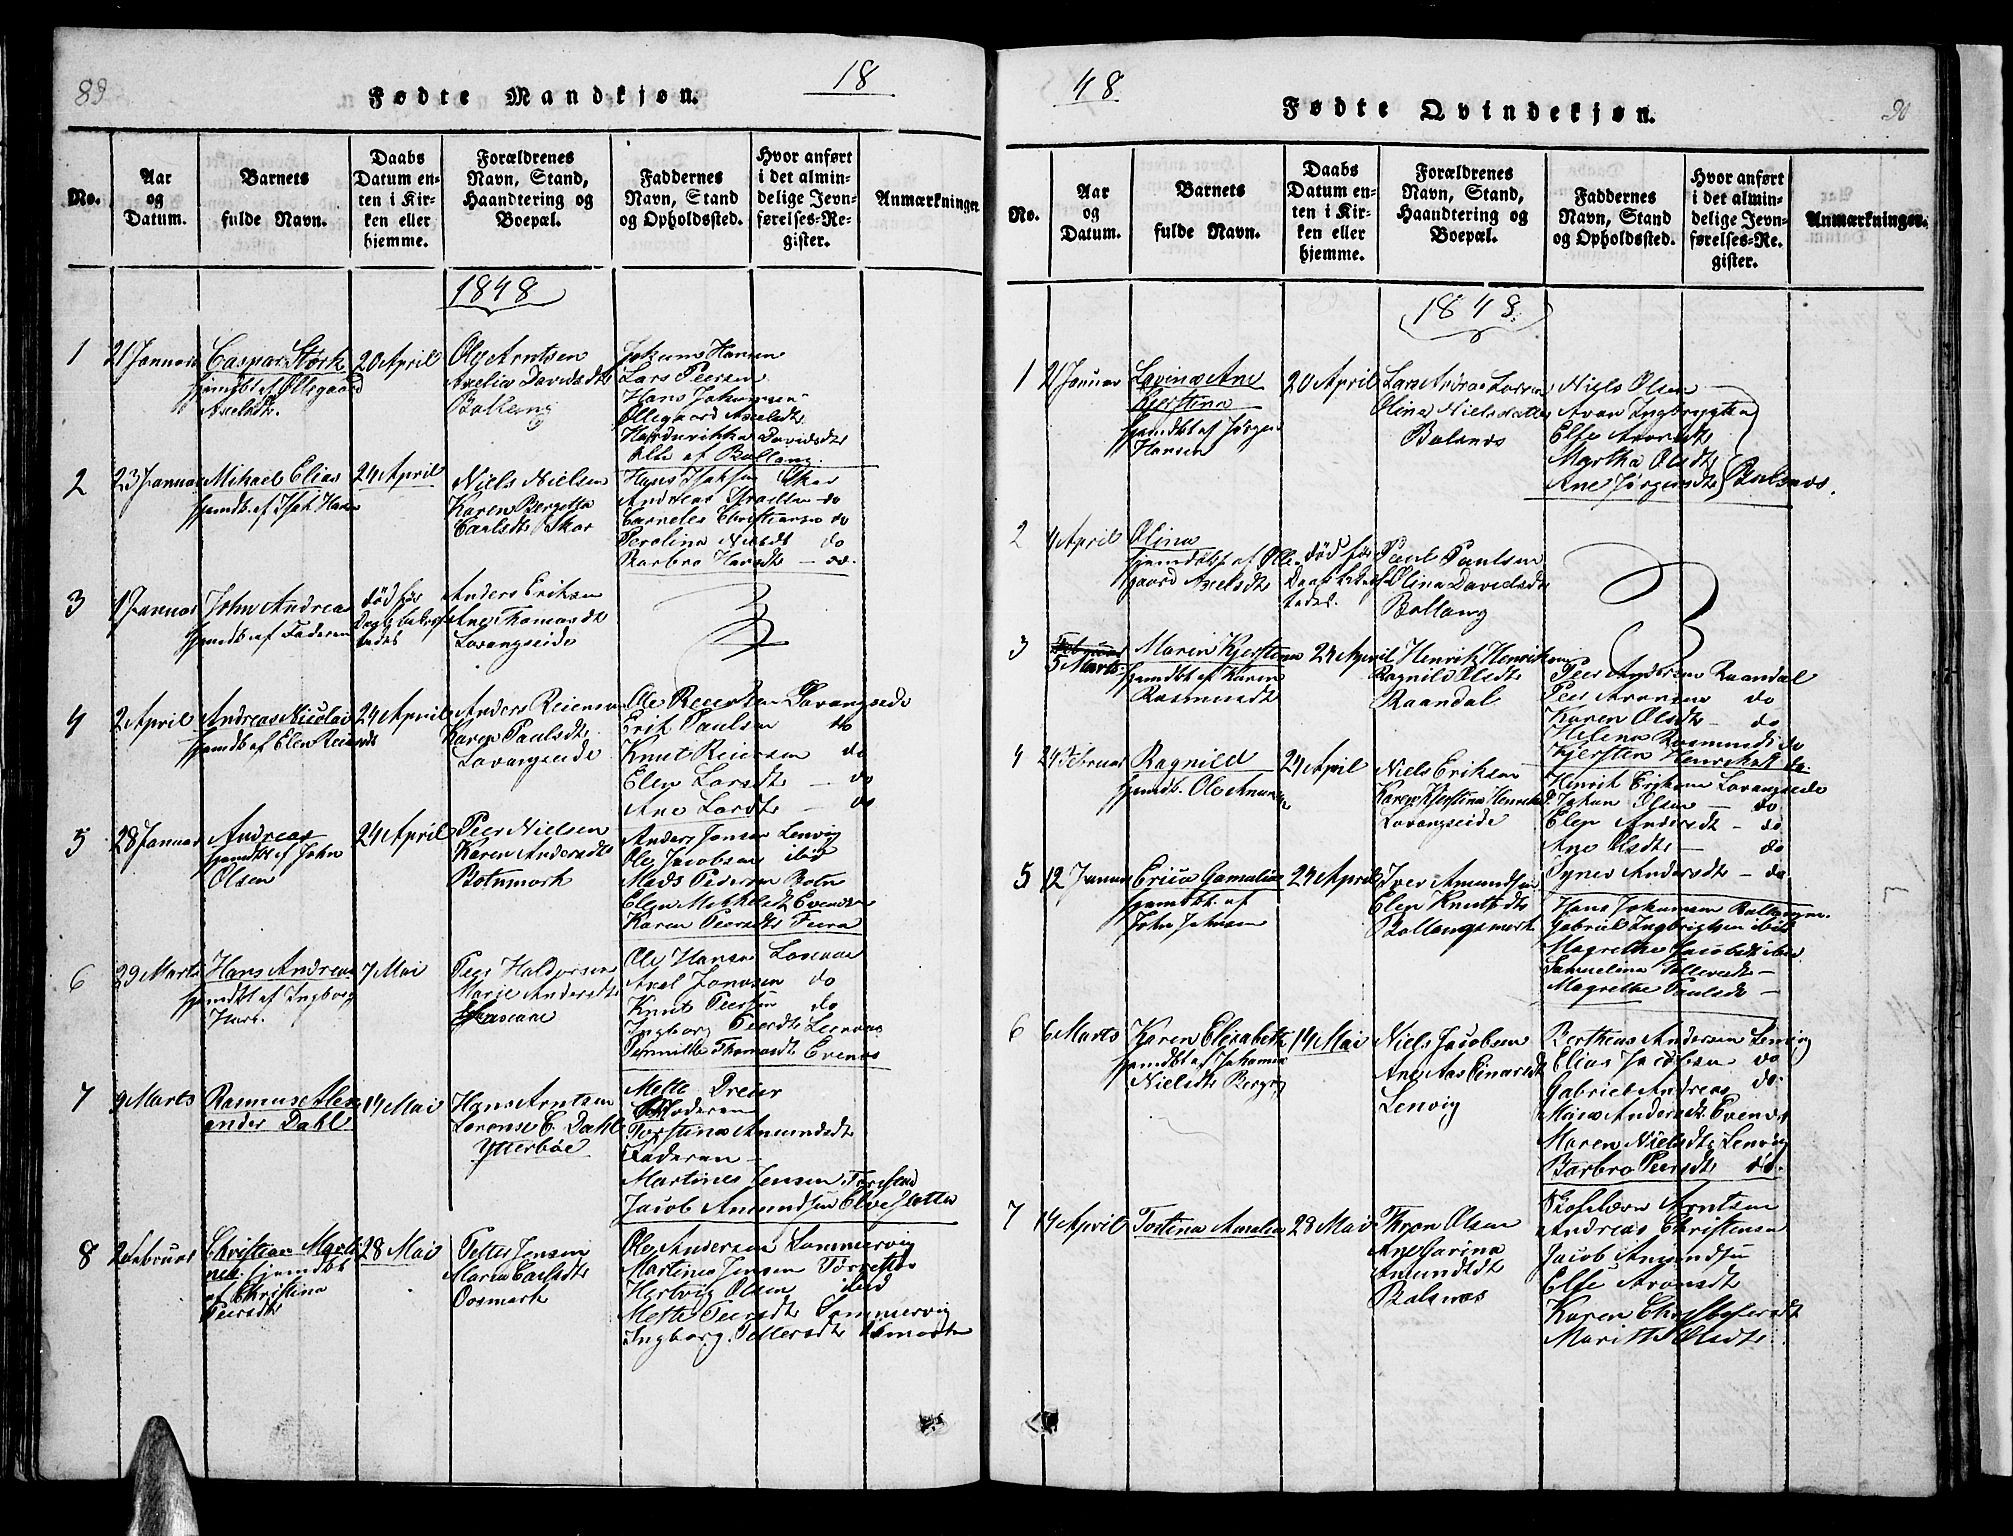 89
Fødte Mandkjøn.
18
No.
Aar
og
Datum.
Barnets
fulde Navn.
Daabs
Datum en-
ten i Kir-
ken eller
hjemme.
Forældrenes
Navn, Stand,
Haandtering og
Boepæl.
Faddernes
Navn, Stand
og Opholdssted.
Hvor anført
i det almin-
delige Jevn-
førelses-Re-
gister.
Anmærkninger
1848
1
21 Januar
Caspar Stork
hjemdbt af Ollegaard
Axelsdtr.
20 April
Ole Arntsen
Axelia Davidsdtr
Ballang
Johans Hansen
Lars Peersen
Hans Johannesen
Ollegaard Axelsdtr
Davidsdtr
Alle af Ballang.
2
23 Januar
Mikael Elias
hjemdbt. af Isak Hansen
24 April
Niels Nielsen
Karen Bergetta
Carlsdtr Skar
Hans Isaksen Skar
Andreas Israelsen do
Carnelus Christiansen do
Perolina Nielsdt do
Barbro Hansdtr — do.
3
1 Januar
John Andreas
hjemdbt af Faderen
død før
Daab bekref
tedes
Anders Eriksen
Ane Thomasdtr
Lavangseide
4
2 April
Andreas Nicolai
hjemdbt af Elen Reiersdt
24 April
Anders Reiersen
Karen Paulsdtr
Lavangseide
Ole Reiersen Lavangseide
Erik Paulsen do
Knut Reiersen do
Elen Larsdtr — do
Ane Larsdtr — do
5
28 Januar
Andreas
hjemdbt af John
Olsen
24 April
Peer Nielsen
Karen Andersdtr
Botnmark
Anders Jansen Lenvig
Ole Jacobsen ibid
Mads Pedersen Botn
Elen Mikkelsdt Evenskr
Karen Peersdtr
6
29 Marts
Hans Andreas
hjemdbt af Ingborg
Hans.
7 Mai
Peer Haldorsen
Marie Andersdtr
Ole Hansen
Axel Jonassen do
Knut Peersen do
Ingborg Peersdtr Leenaas
Pernille Thomasdt Evenes
7
9 Marts
Rasmus Alex
ander Dahl
14 Mai
Hans Arntsen
Lorense C. Dahl
Ytterbøe
Mette Dreier
Moderen
Torstina Amundsdtr
Faderen —
Martines Jensen
Jacob Amundsen Elveslette
8
2 Februar
Christian Marti
nus. hjemdbt
af Christina
Peersdtr
28 Mai
Petter Jensen
Maren Carlsdtr
Oosmark
Ole Andersen Sommervig
Martines Jensen
Hartvig Olsen ibid
Mette Peersdtr Sommervig
Ingborg Pettersdtr Osmarken
48
Fødte Qvindekjøn.
90
No.
Aar
og
Datum.
Barnets
fulde Navn.
Daabs
Datum en-
ten i Kir-
ken eller
hjemme.
Forældrenes
Navn, Stand,
Haandtering og
Boepæl.
Faddernes
Navn, Stand
og Opholdssted.
Hvor anført
i det almin-
delige Jevn-
førelses-Re-
gister.
Anmærkninger.
1848.
1
21 Januar
Lovina Ane
Kjerstina
hjemdbt af Jørgen
Hansen
20 April
Lars Andreas Larsen
Olina Nielsdatter
Balsnes
Niels Olsen
Aron Ingbrigtsen
Else Aronsdtr
Martha Olsdtr
Ane Jørgensdtr
Balsnes.
2
4 April
Olina
hjemdøbt af Olle
gaard Axelsdtr
død før
Daab bekref
tedes.
Peer Paulsen
Olina Davidsdtr
Ballang
3
Februar
5 Marts
Maren Kjerstina
hjemdbt af Karen
Rasmusdtr
24 April
Henrik Henriksen
Ragnild Olsdtr
Raandal
Peer Andersen Raandal
Peer Aronsen do
Karen Olsdtr — do
Helena Rasmusdt do
Kjersten Henriksdt do.
4
24 Februar
Ragnild
hjemdt. Ole Amundsen
24 April
Niels Eriksen
Karen Kjerstina Henriksd.
Lavangseide
Henrik Eriksen Lavangseide
Johan Olsen — do
Elen Andersdt — do
Ane Olsdtr — do
Synev Andersdtr — do
5
12 Januar
Erica Gamalia
hjemdbt. af
John Johnsen
24 April
Iver Amundsen
Elen Knutsdtr
Ballangsmark
Hans Johansen Ballangen.
Gabriel Ingbrigtsen ibid
Magrethe Jacobsdt ibid.
Samueline Tollevsdtr —
Magrethe Paulsdtr —
6
6 Marts
Karen Elisabeth
hjemdbt af Johanna
Nielsdtr Berger
14 Mai
Niels Jacobsen
Ane Aas Einarsdtr
Lenvig
Bertheus Andersen Lenvig
Elias Jacobsen do
Gabriel Andreas do.
Maren Andersdt. Evenes
Maren Nielsdtr Lenvig
Barbro Peersdtr do.
7
14 April
Tortina Amalia
28 Mai
Thron Olsen
Ane Carina
Amundsdtr
Balsnes
Arntsen
Andreas Christensen
Jacob Amundsen
Else Aronsdtr
Karen Christofersdtr
Marith Olsdtr.